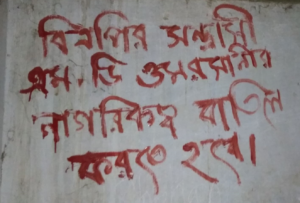 বিএনপির সন্ত্রাসী
এম. ডি ওমরসানীর
নাগরিকত্ব বাতিল
করতে হবে।